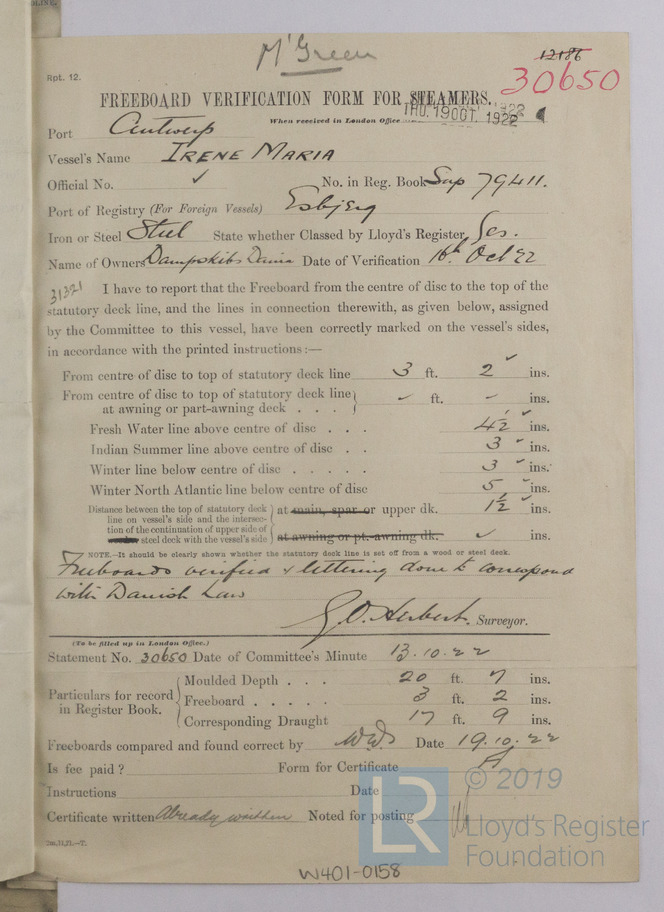 DLINE.
M'Green
12186
Rpt. 12.
30650
FREEBOARD VERIFICATION FORM FOR STEAMERS.
When received in London Office THU. 19 OCT. 1922
Port Antwerp
Vessel's Name IRENE MARIA
Official No. ✓ No. in Reg. Book Sup 79411.
Port of Registry (For Foreign Vessels) Esbjerg
Iron or Steel Steel State whether Classed by Lloyd's Register Yes.
Name of Owners Dampskibs Dania Date of Verification 16th Oct 22
31321 I have to report that the Freeboard from the centre of disc to the top of the
statutory deck line, and the lines in connection therewith, as given below, assigned
by the Committee to this vessel, have been correctly marked on the vessel's sides,
in accordance with the printed instructions :—
From centre of disc to top of statutory deck line 3 ft. 2 ✓ ins.
From centre of disc to top of statutory deck line
at awning or part-awning deck . . . - ft. - ins.
Fresh Water line above centre of disc . . . 4½ ✓ ins.
Indian Summer line above centre of disc . . 3 ✓ ins.
Winter line below centre of disc . . . . . 3 ✓ ins.
Winter North Atlantic line below centre of disc 5 ✓ ins.
Distance between the top of statutory deck
line on vessel's side and the intersec-
tion of the continuation of upper side of
steel deck with the vessel's side
at main, spar or upper dk. 1½ ✓ ins.
at awning or pt.-awning dk. ✓ ins.
NOTE.—It should be clearly shown whether the statutory deck line is set off from a wood or steel deck.
Freeboards verified & lettering done to correspond
with Danish Law
G.O. Herbert. Surveyor.
(To be filled up in London Office.)
Statement No. 30650 Date of Committee's Minute 13.10.22
Particulars for record
in Register Book.
Moulded Depth . . . 20 ft. 7 ins.
Freeboard . . . . . 3 ft. 2 ins.
Corresponding Draught 17 ft. 9 ins.
Freeboards compared and found correct by WWS Date 19.10.22
Is fee paid ? Form for Certificate
Instructions Date
Certificate written Already written Noted for posting
2m,11,21.—T.
LR
© 2019
Lloyd's Register
Foundation
W401-0158